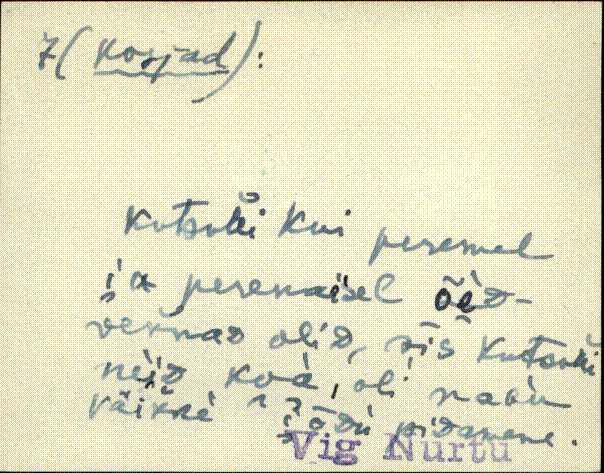 7 (korjad):
kutsuti kui peremel
ja perenaisel õed-
vennad olid, sis kutsuti
neid koa, oli nagu
väikse jõdu pidamene.
Vig Nurtu